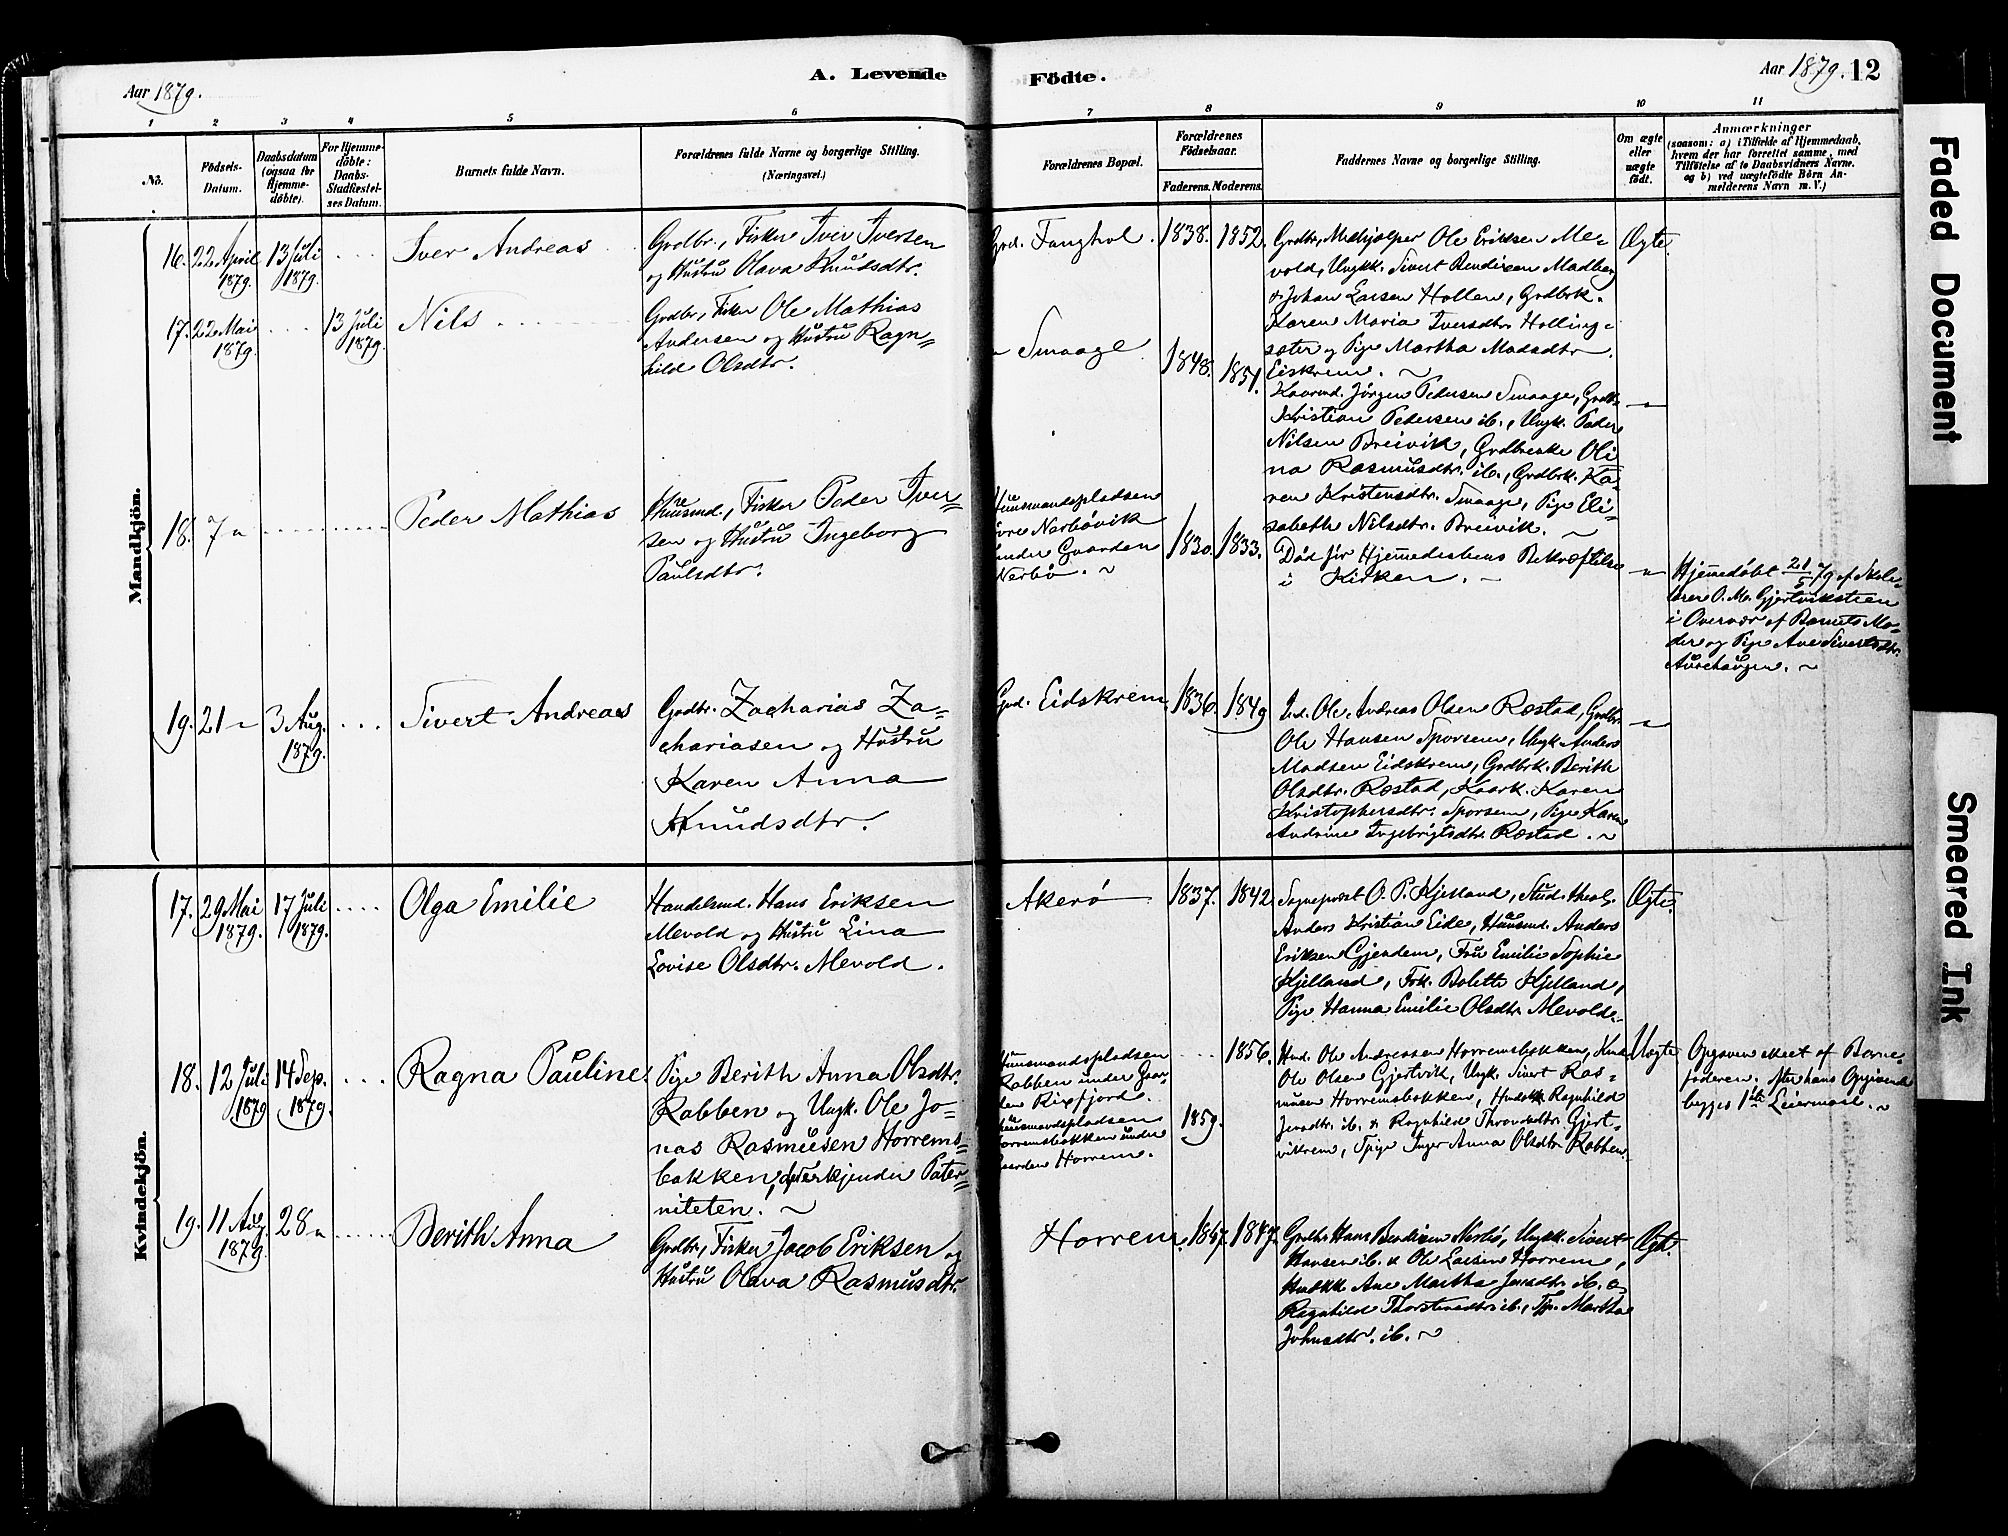 Aar 1879.
A. Levende
Födte.
Aar 1879. 12
1 2 3 4 5 6 7 8 9 10 11
No.
Födsels-
Datum.
Daabsdatum
(ogsaa for
Hjemme-
döbte).
For Hjemme-
döbte:
Daabs-
Stadfæstel-
ses Datum.
Barnets fulde Navn.
Forældrenes fulde Navne og borgerlige Stilling.
(Næringsvei.)
Forældrenes Bopæl.
Forældrenes
Födselsaar.
Faderens. Moderens.
Faddernes Navne og borgerlige Stilling.
Om ægte
eller
uægte
födt.
Anmærkninger
(saasom: a) i Tilfælde af Hjemmedaab,
hvem der har forrettet samme, med
Tilföielse af to Daabsvidners Navne,
og b) ved uægtefödte Börn An-
melderens Navn m. V.)
Mandkjön.
16. 22 April 1879. 13 Juli 1879. .... Iver Andreas
Grdbr., Fisker Iver Iversen
og Hustru Olava Knudsdtr.
Grd. Tanghol. 1838. 1852.
Grdbr., Medhjælper Ole Eriksen Me-
vold, Ungk. Sivert Bendixen Madberg
& Johan Larsen Hollen, Grdbrk.
Karen Maria Iversdtr. Holling-
sæter og Pige Martha Madsdtr.
Eiskrem. ~
Ægte
17. 22 Mai 1879. .... 13 Juli 1879. Nils
Grdbr., Fisker Ole Mathias
Andersen og Hustru Ragn=
hild Olsdtr.
" Smaage. 1848. 1851.
Kaarmd. Jørgen Pedersen Smaage, Grdbr.
Kristian Pedersen ib., Ungk. Peder
Nilsen Breivik, Grdbrenke Oli
na Rasmusdtr. ib., Grdbrk. Ka-
ren Kristensdtr. Smaage, Pige Eli-
sabeth Nilsdtr. Breivik. ~
"
18. 7 " Peder Mathias
Huusmd., Fisker Peder Iver=
sen og Hustru Ingeborg
Paulsdtr.
Huusmandspladsen
øvre Nerbøvik
under Gaarden
Nerbø. ~
1830. 1833.
Død før Hjemmedaabens Bekræftelse
i Kirken. ~
"
Hjemedøbt 21/5 79 af Skole-
lærer O. M. Gjertvikstien
i Overvær af Barnets Mo=
der og Pige Ane Sivertsdtr.
Aurehaugen. ~
19. 21 " 3 Aug. 1879. ... Sivert Andreas
Grdbr. Zacharias Za=
chariasen og Hustru
Karen Anna
Knudsdtr.
Grd. Eidskrem 1836. 1849
Ole Andreas Olsen Rostad, Grdbr.
Ole Hansen Sporsem, Ungk. Anders
Madsen Eidskrem, Grdbrk. Berith
Olsdtr. Rostad, Kaark. Karen
Kristophersdtr. Sporsem, Pige Karen
Andrine Ingebrigtsdtr. Rostad. ~
"
Kvindekjön.
17. 29 Mai 1879. 17 Juli 1879. .... Olga Emilie
Handelsmd. Hans Eriksen
Mevold og Hustru Lina
Lovise Olsdtr. Mevold.
Akerö 1837. 1842
Sognepræst O. P. Kjelland, Stud. theol.
Anders Kristian Eide, Huusmd. Anders
Eriksen Gjendem, Fru Emilie Sophie
Kjelland, Frk. Bolette Kjelland,
Pige Hanna Emilie Olsdtr. Mevold.
Ægte.
18. 12 Juli 1879 14 Sep. 1879. .... Ragna Pauline
Pige Berith Anna Olsdtr.
Rabben og Ungk. Ole Jo-
nas Rasmusen Horrems-
bakken, der erkjender Pater=
niteten. ~
Huusmandspladsen
Rabben under Gaar-
den Rixfjord.
Huusmandspladsen
Horremsbakken under
Gaarden Horrem.
.... 1856.
1859.
Hmd. Ole Andreasen Horremsbakken,
Ole Olsen Gjertvik, Ungk. Sivert Ras-
musen Horremsbakken, Ragnhild
Jensdtr. ib. & Ragnhild Throndsdtr. Gjert-
vikrem, Tpige Inger Anna Olsdtr. Rabben.
Uægte
Opgaven skeet af Barne-
faderen. Efter hans Opgivende
begges 1ste Leiermaal. ~
19. 11 Aug. 1879. 28 " ...... Berith Anna
Grdbr., Fisker Jacob Eriksen og
Hustru Olava Rasmusdtr.
Horrem. 1847. 1847.
Grdbr. Hans Bendixen Nerbö, Ungk. Sivert
Hansen ib. & Ole Larsen Horrem,
Ane Martha Jensdtr. ib. og
Ragnhild Thorstensdtr. ib., Tp. Martha
Johnsdtr. ib. ~
Ægte.
Faded Document
Smeared Ink